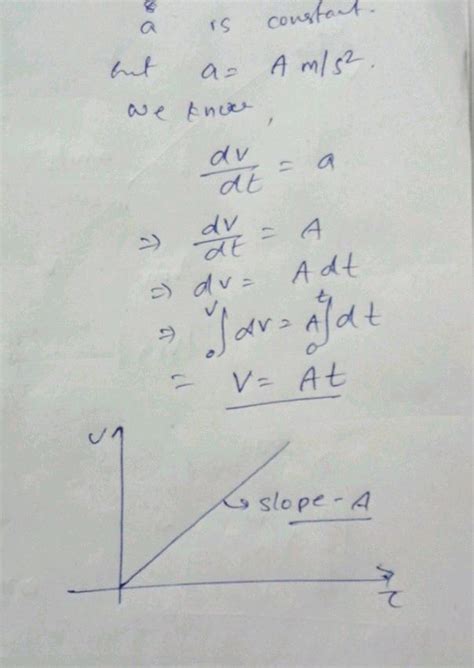 a is constant.
but a = A m/s².
we know,
dv/dt = a
⇒ dv/dt = A
⇒ dv = A dt
⇒ ᵛ₀∫ dv = A ᵗ₀∫ dt
= V = At
v
slope - A
t